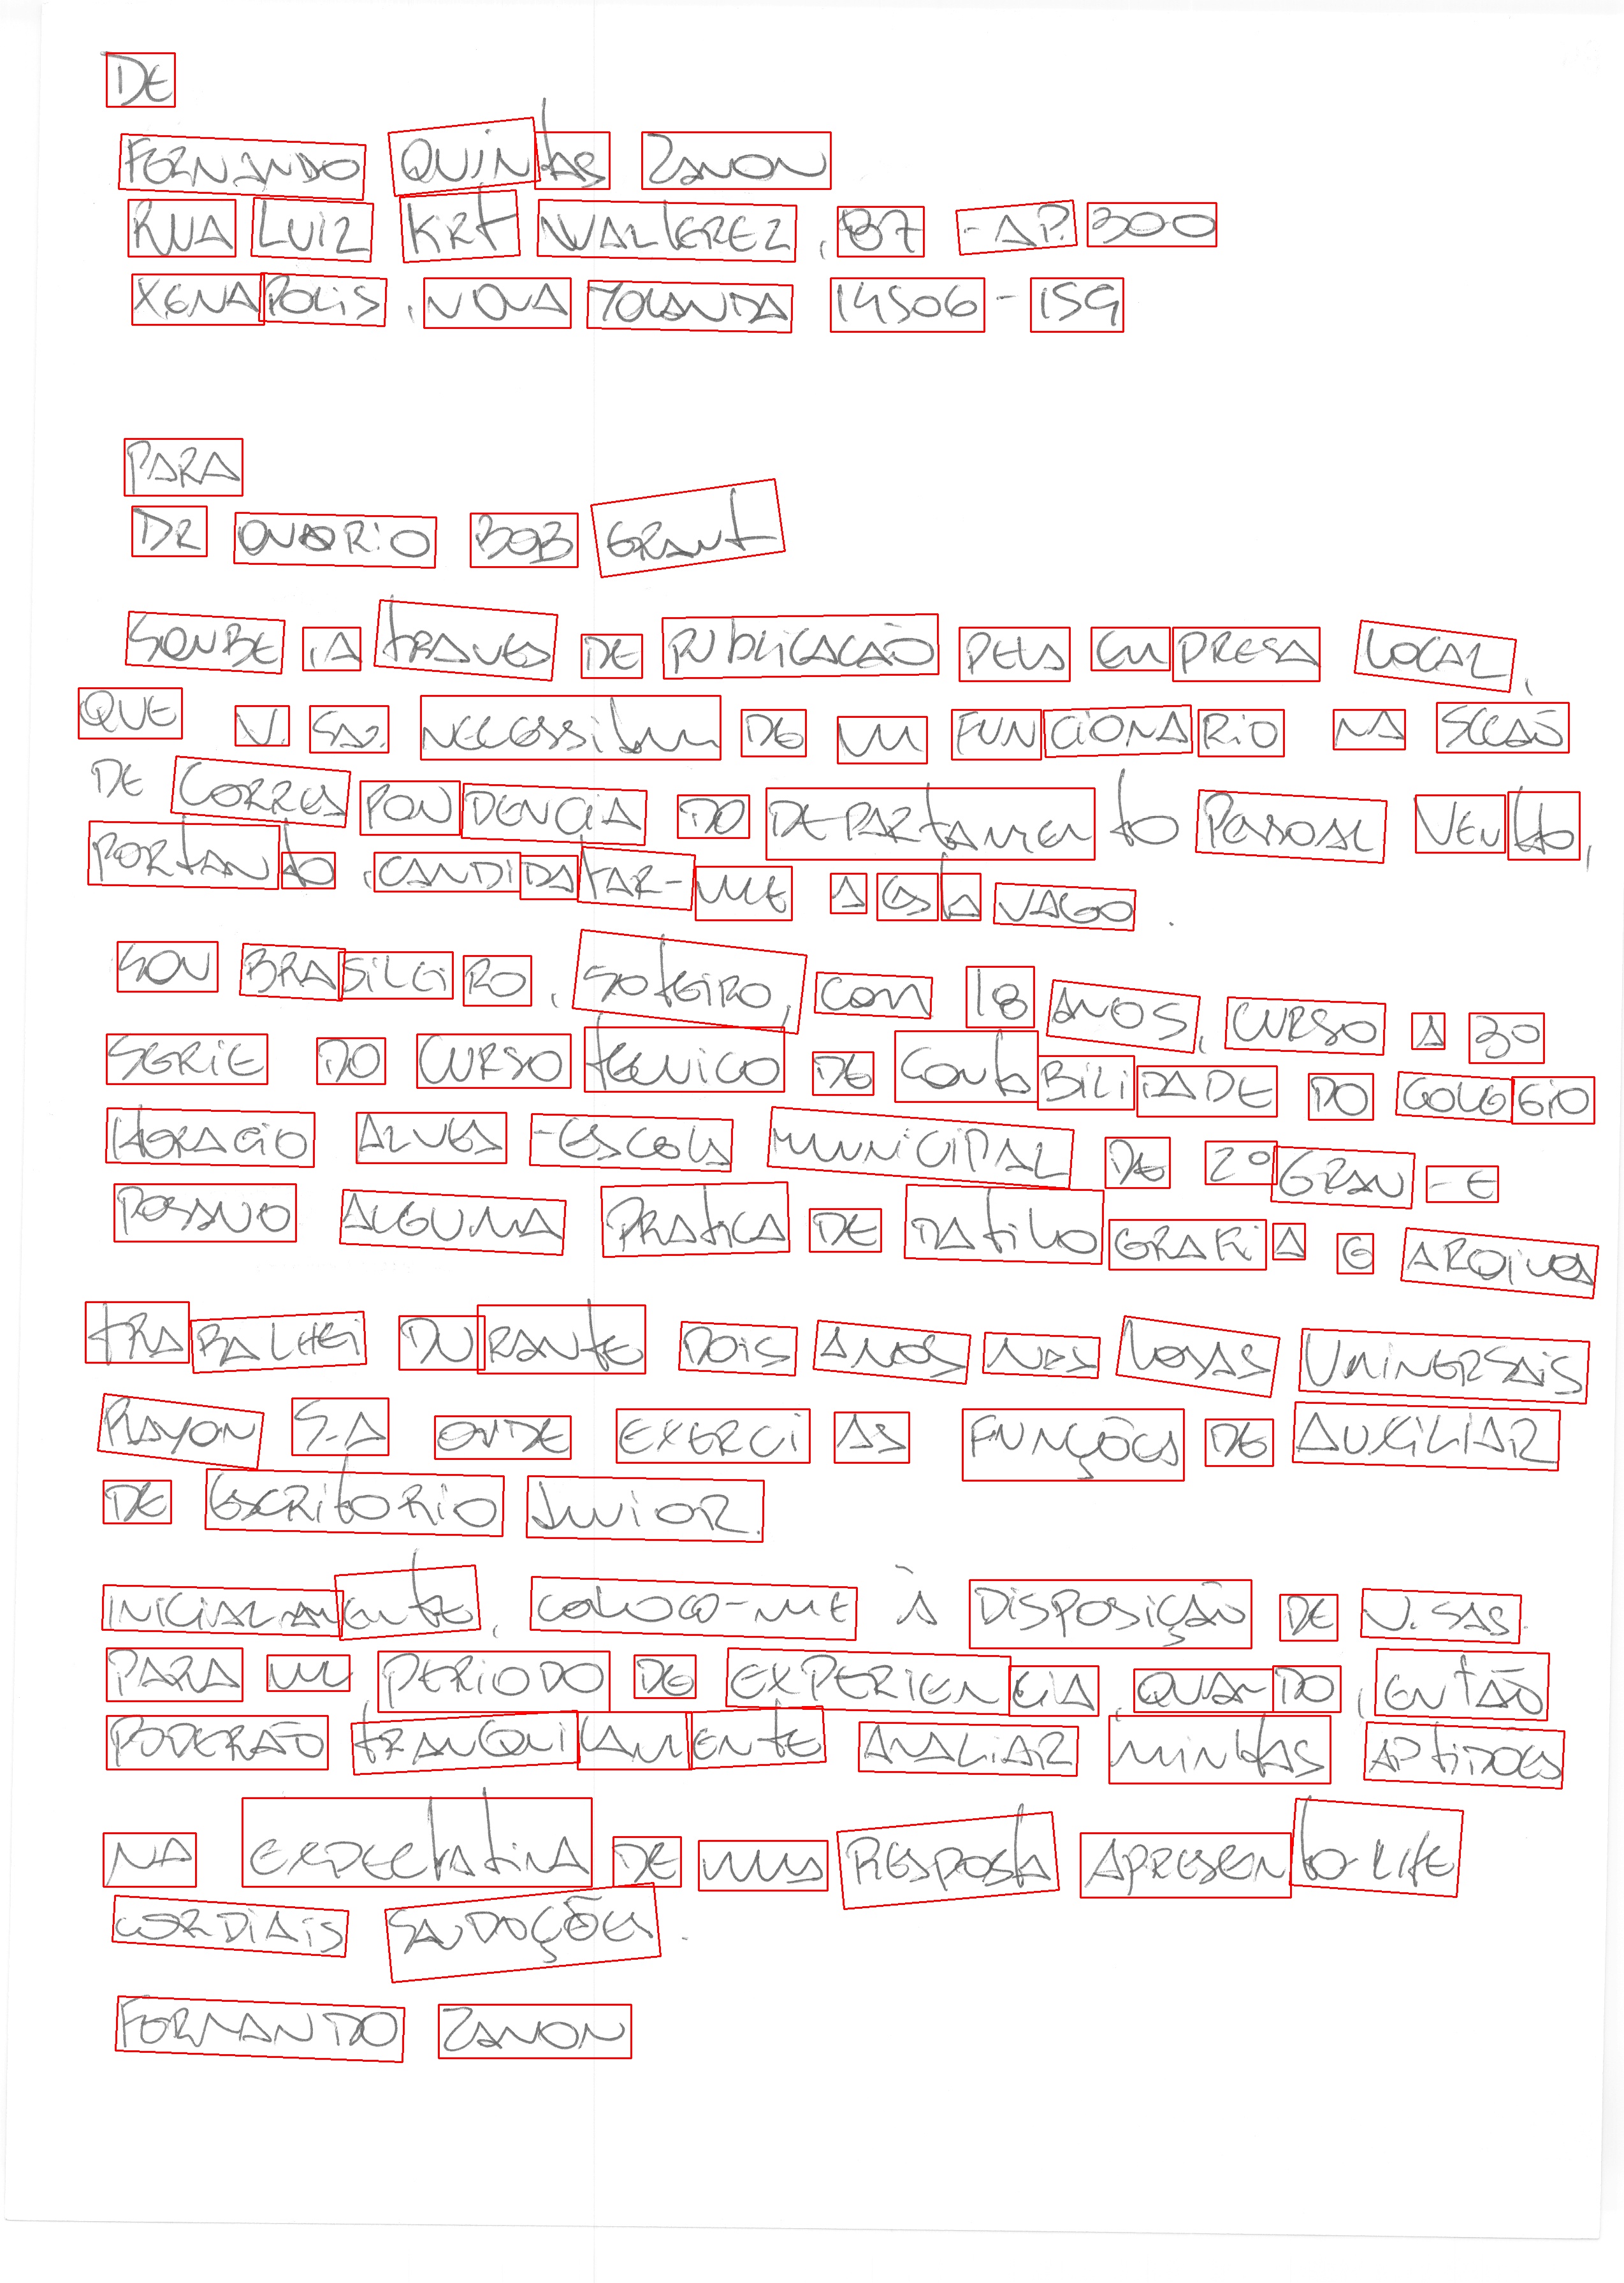 DE
FERNANDO QUINTAS ZANON
RUA LUIZ KRT WALTEREZ, 87 - AP. 300
XENAPOLIS, NOVA YOLANDA 14506-159
PARA
DR OVARIO BOB GRANT
SOUBE, A TRAVES DE PUBLICAÇÃO PELA EMPRESA LOCAL,
QUE V. SAS. NECESSITAM DE UM FUNCIONARIO NA SECÃO
DE CORRESPONDENCIA DO DEPARTAMENTO PESSOAL VENHO,
PORTANTO, CANDIDATAR-ME A ESTA VAGO.
SOU BRASILEIRO, SOTEIRO, COM 18 ANOS, CURSO A 30
SERIE DO CURSO TECNICO DE CONTABILIDADE DO COLEGIO
HORACIO ALVES - ESCOLA MUNICIPAL DE 2º GRAU - E
POSSUO ALGUMA PRATICA DE DATILOGRAFIA E ARQIVOS
TRABALHEI DURANTE DOIS ANOS NAS LOSAS UNIVERSAIS
RAYON S.A ONDE EXERCI AS FUNÇÕES DE AUXILIAR
DE ESCRITORIO JUNIOR.
INICIALAMENTE, COLOCO-ME À DISPOSIÇÃO DE V. SAS.
PARA UM PERIODO DE EXPERIENCIA, QUANDO, ENTÃO
PODERÃO TRANQUILAMENTE AVALIAR MINHAS APTIDÕES
NA EXPECTATIVA DE UMA RESPOSTA APRESENTO-LHE
CORDIAIS SAUDOÇÕES.
FERNANDO ZANON